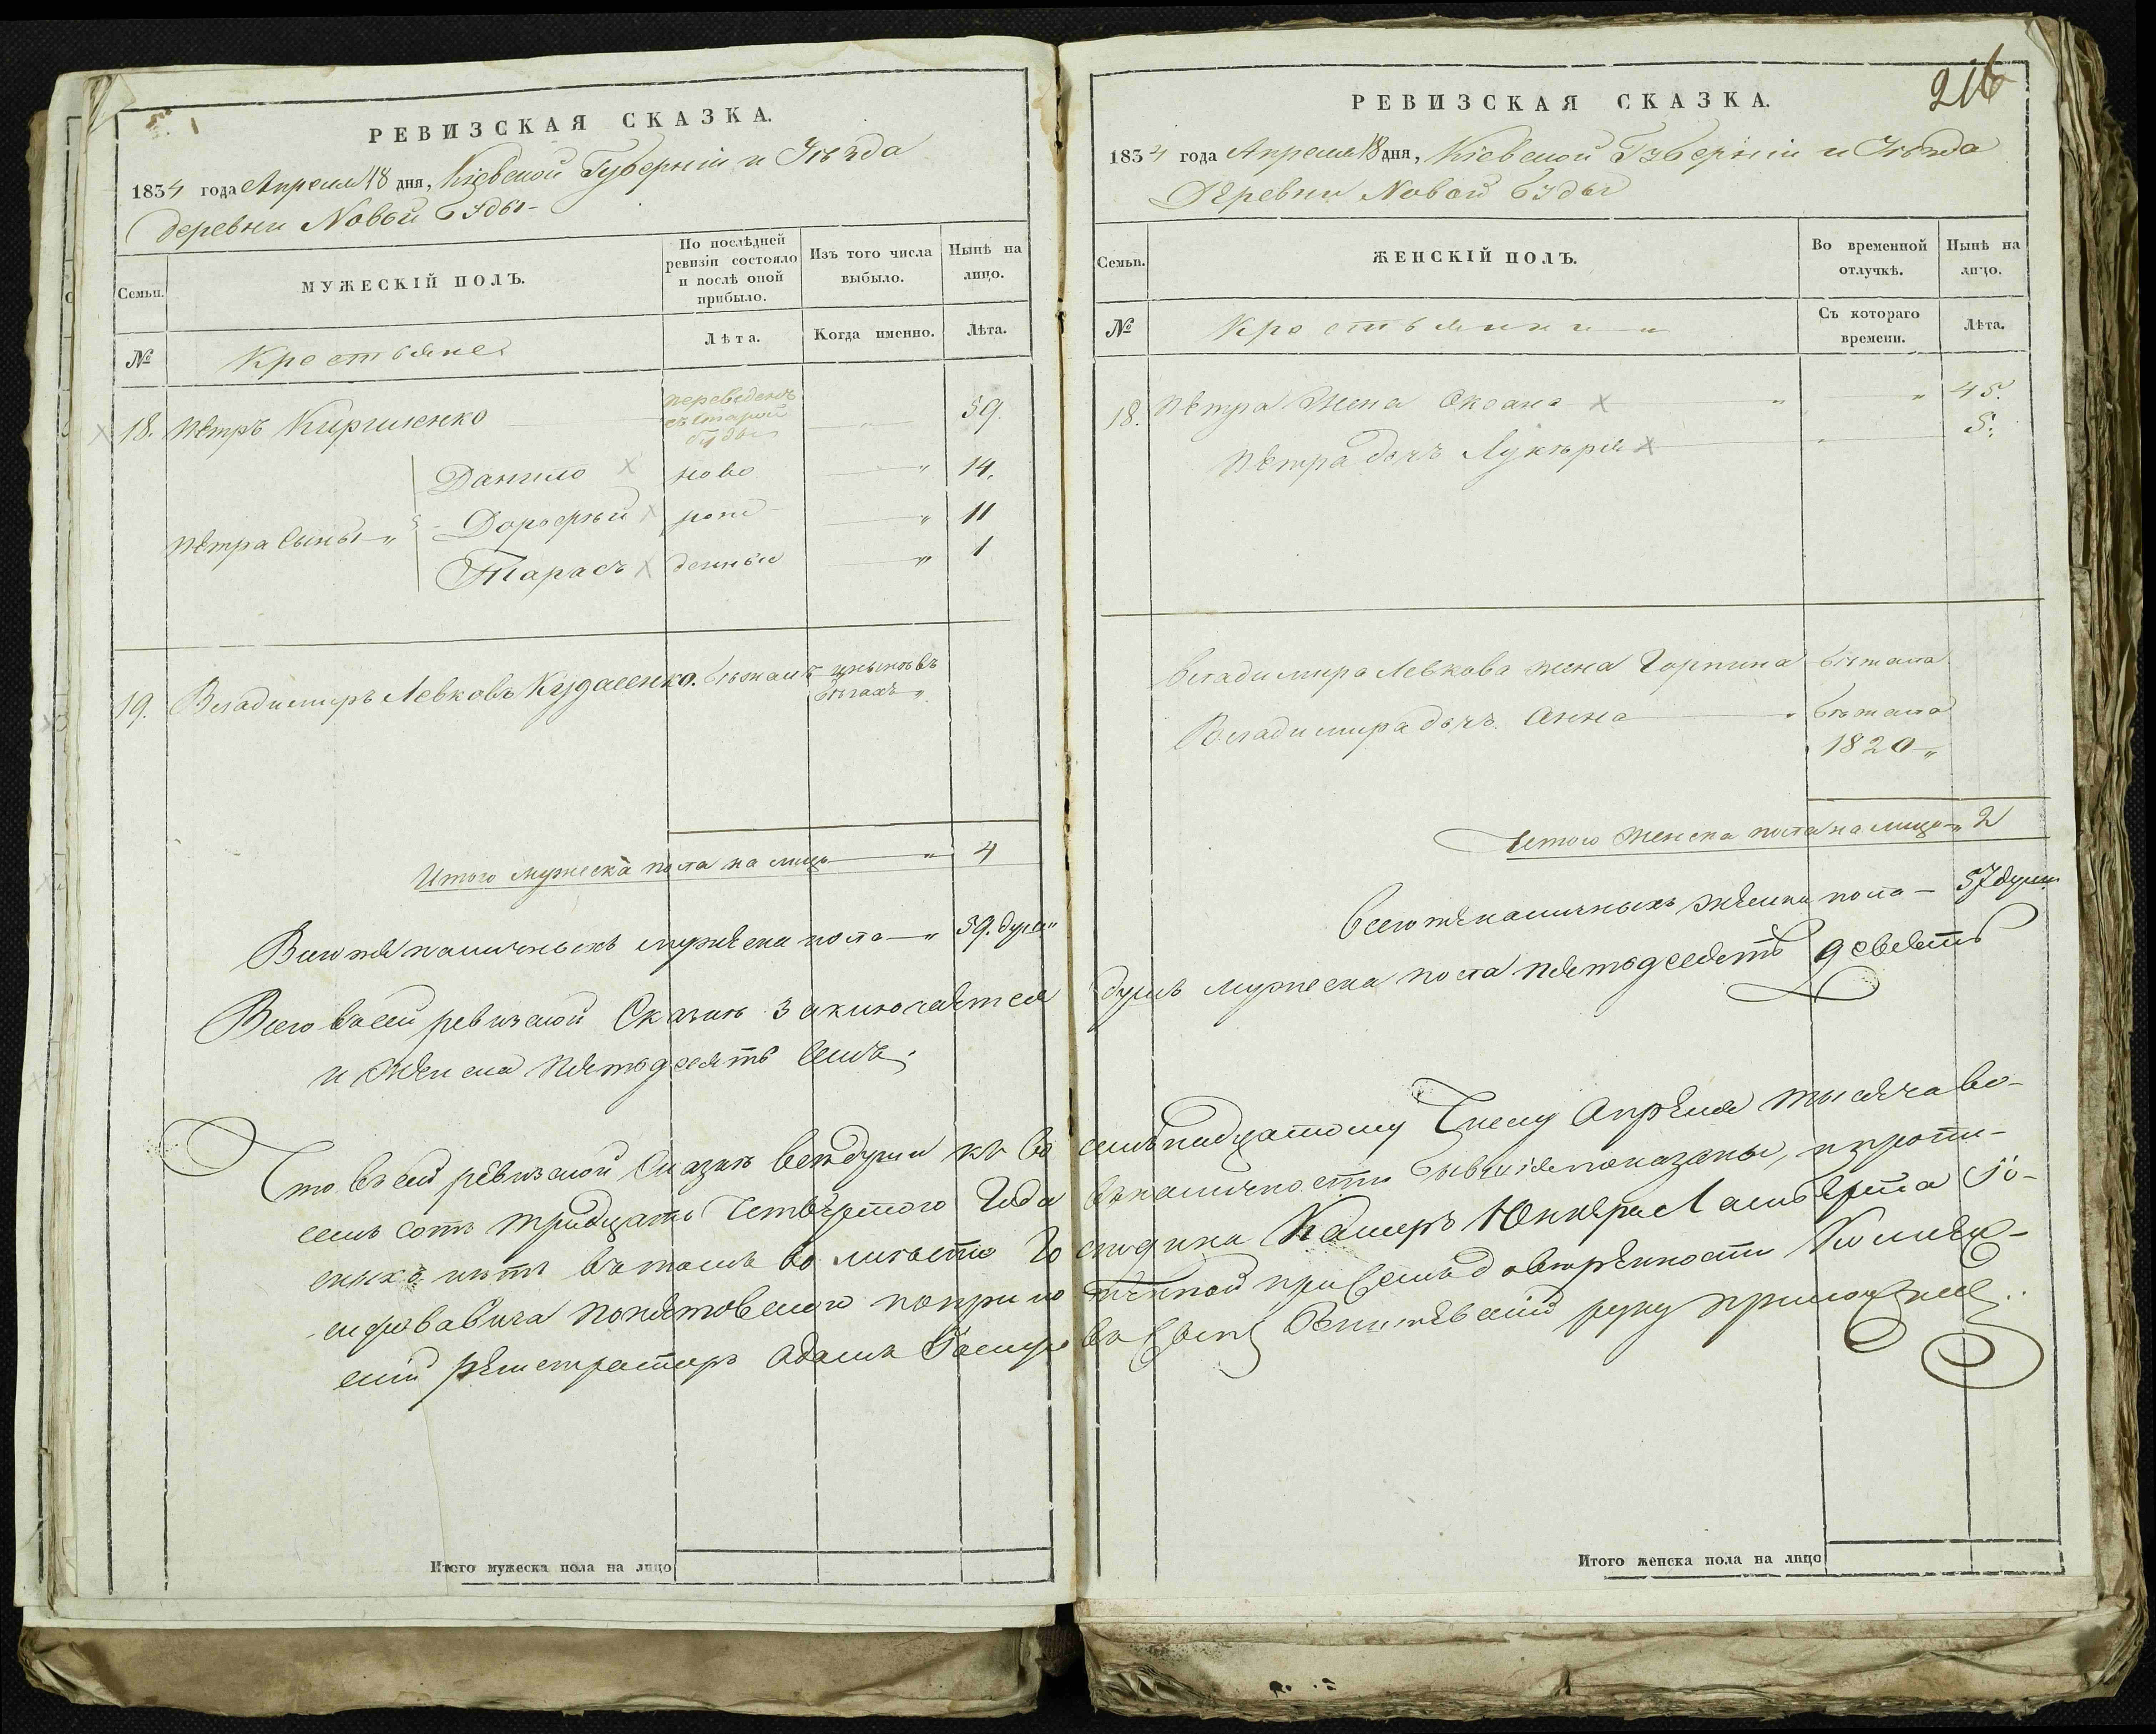 РЕВИЗСКАЯ СКАЗКА.
1834 года Апреля 18 дня, Кіевской Губерніи и Уѣзда
деревни Новой Буды
Семьи.
МУЖЕСКІЙ ПОЛЪ.
По послѣдней ревизіи состояло и послѣ оной прибыло.
Изъ того числа выбыло.
Нынѣ на лицо.
№
Крестьяне
Лѣта.
Когда именно.
Лѣта.
18. Петръ Кириленко переведенъ съ старой Буды 59.
Данило ново 14.
Петра Сыны Дорофей рож 11
Тарасъ денные 1
19. Владимиръ Левковъ Кудленко. бѣжалъ и нынѣ въ бѣгахъ
Итого мужеска пола на лицо 4
Всего же наличныхъ мужеска пола 59. душъ
Всего въ сей ревизской Сказкѣ заключается
и женска пятьдесятъ семъ.
Что въ сей ревизской Сказкѣ всѣ души къ во
семъ сотъ тридцать Четвертого Года
ныхъ нѣтъ въ томъ во мѣсто Го
Понятовского по прило
скій регистраторъ Адамъ
Итого мужеска пола на лицо
216
РЕВИЗСКАЯ СКАЗКА.
1834 года Апреля 18 дня, Кіевской Губерніи и Уѣзда
Деревни Новой Буды
Семьи.
ЖЕНСКІЙ ПОЛЪ.
Во временной отлучкѣ.
Нынѣ на лицо.
№
Крестьянки
Съ котораго времени.
Лѣта.
18. Петра Жена Оксана 45.
Петра дочъ Лукерія 5.
Владимира Левкова жена Горпина бѣжала
Владимира дочъ Анна бѣжала
1820
Итого Женска пола на лицо 2
Всего же наличныхъ женска пола 57 душъ
душъ мужеска пола пятьдесятъ девять
семънадцатому Числу Апреля тысяча во-
въ наличности бывшія показаны, и пропи-
сподина Камеръ Юнкера Ламберта Іо-
женной при семъ доверенности Коллеж-
руку приложилъ
Итого женска пола на лицо